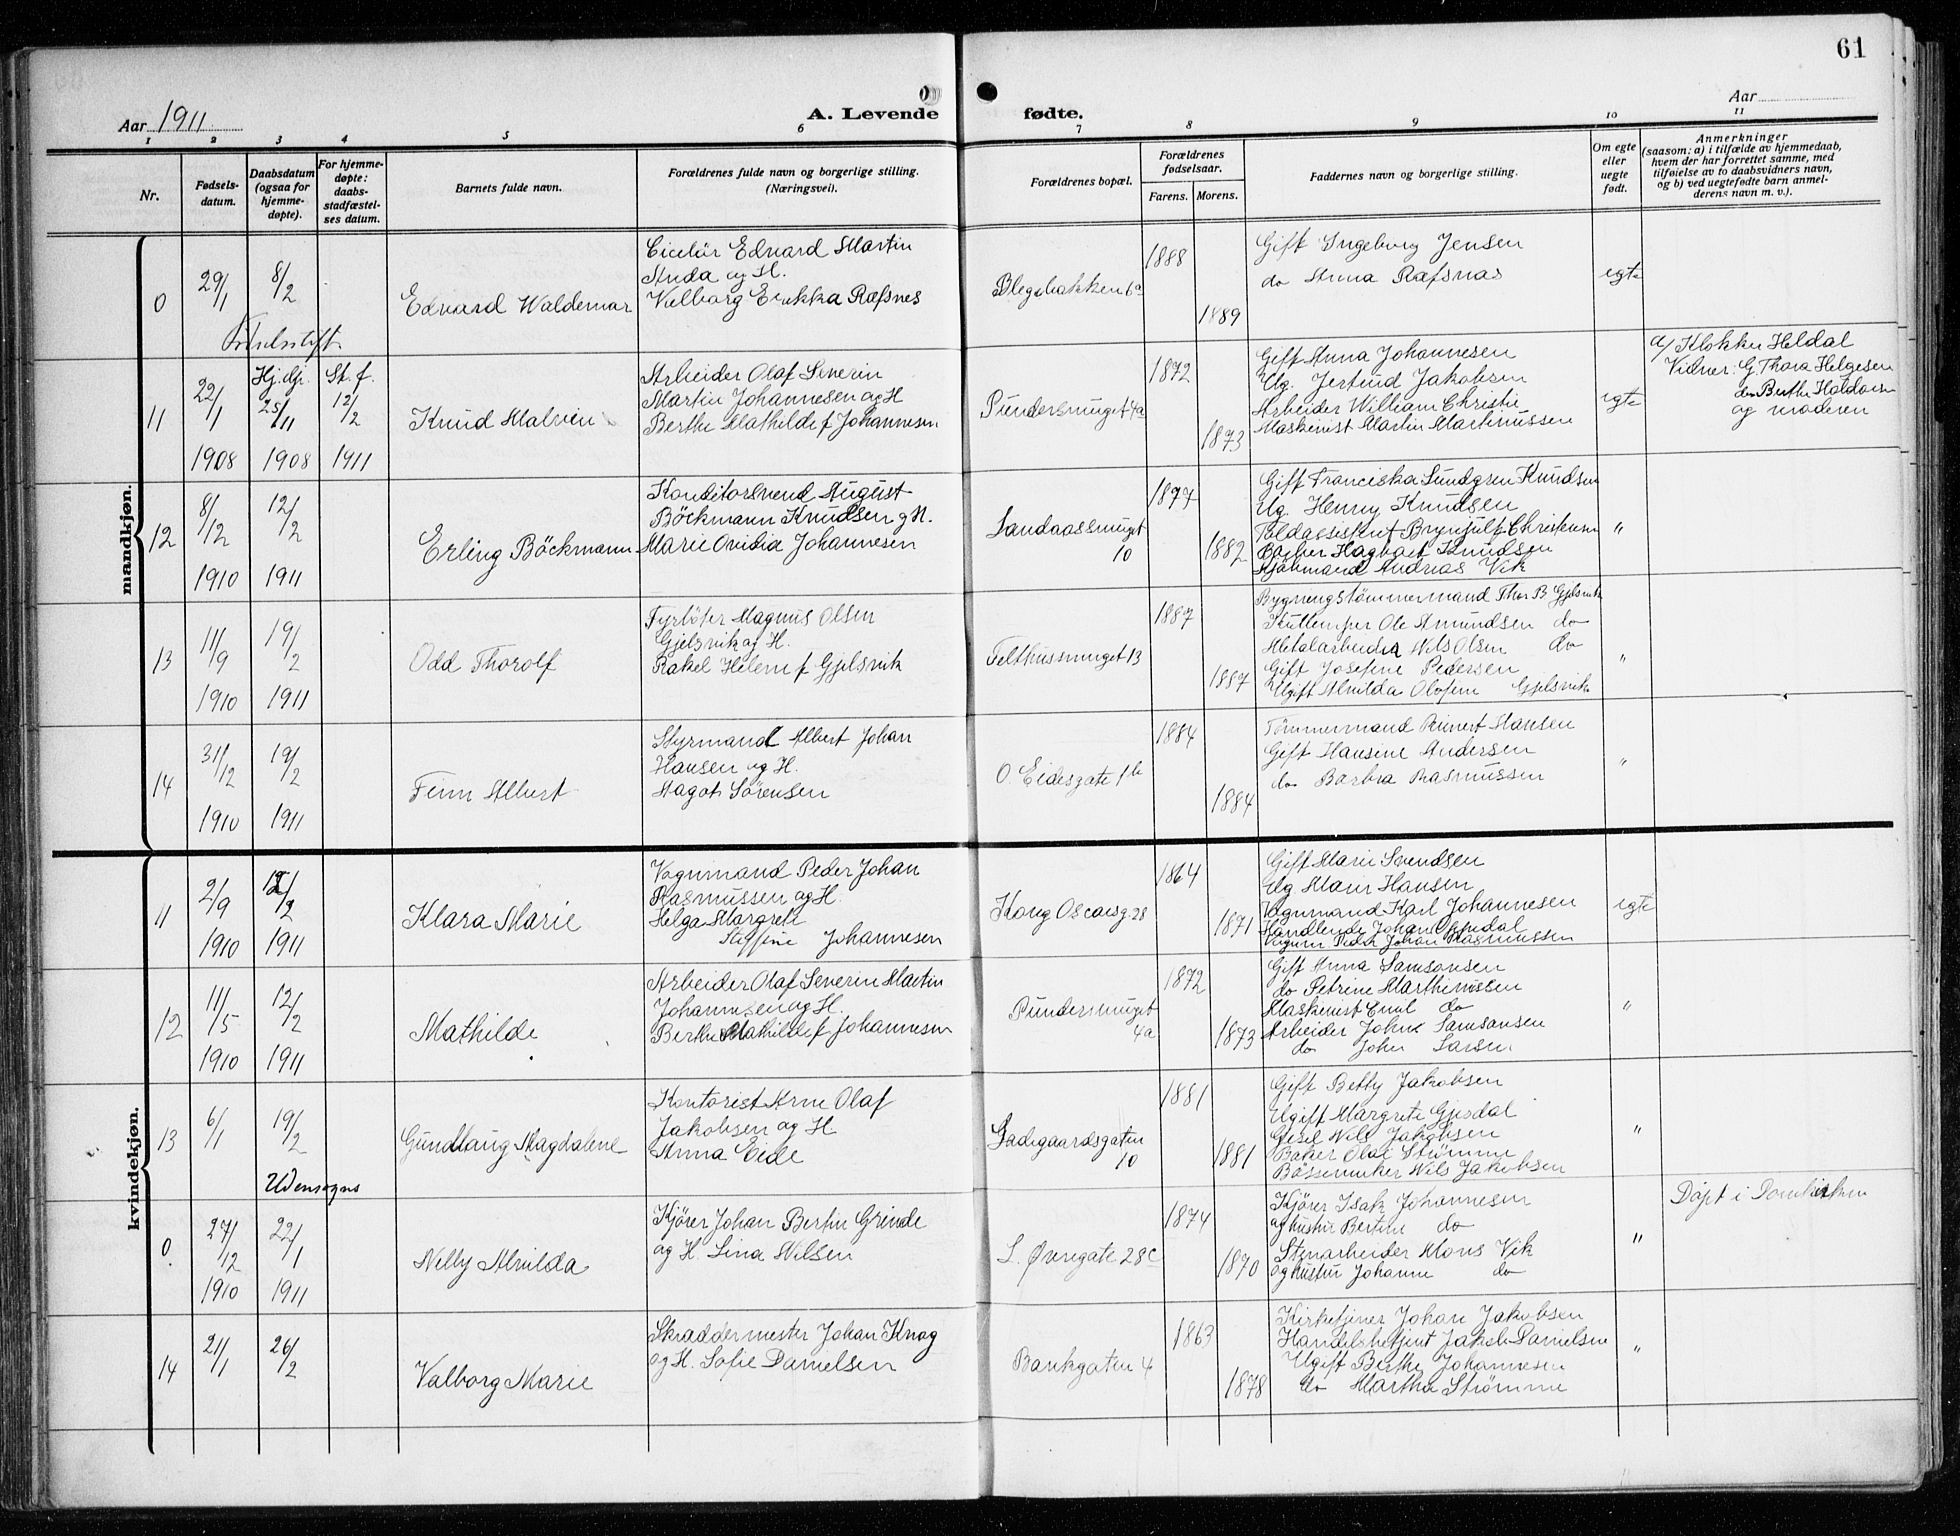 61
Aar 1911
A. Levende fødte.
Aar
1 2 3 4 5 6 7 8 9 10 11
Nr.
Fødsels-
datum.
Daabsdatum
(ogsaa for
hjemme-
døpte).
For hjemme-
døpte:
daabs-
stadfæstel-
ses datum.
Barnets fulde navn.
Forældrenes fulde navn og borgerlige stilling.
(Næringsvei).
Forældrenes bopæl.
Forældrenes
fødselsaar.
Farens. Morens.
Faddernes navn og borgerlige stilling.
Om egte
eller
uegte
født.
Anmerkninger
(saasom: a) i tilfælde av hjemmedaab,
hvem der har forrettet samme, med
tilføielse av to daabsvidners navn,
og b) ved uegtefødte barn anmel-
derens navn m. v.).
mandkjøn.
0
29/1
8/2
Fødselsstift
Edvard Waldemar
Edvard Martin
og H.
Ræfsnes
6a
1888
1889
Gift Ingeborg Jensen
do Anna Ræfsnæs
egte
11
22/1
1908
Hj.dp.
25/11
1908
St. f.
12/2
1911
Knud Malvin
Arbeider Olaf Severin
Martin Johannesen og H
Berthe Mathilde f Johannesen
Pundersmuget 4a
1872
1873
Gift Anna Johannesen
Ug. Jertrud Jakobsen
Arbeider William Christie
Maskinist Martin Martinussen
egte
a/ Klokker Heldal
Vidner: G. Thora Helgesen
do Berthe
og moderen
12
8/12
1910
12/2
1911
Erling Böckmann
Konditorsvend August
Böckmann Knudsen og H.
Marie Ovidia Johannesen
Sandaassmuget
10
1877
1882
Gift Franciska Lundgren Knudsen
Ug. Henny Knudsen
Toldassistent Brynjulf Christensen
Bagher Hagbart Knudsen
Andreas Vik
"
13
11/9
1910
19/2
1911
Odd Thorolf
Fyrböter Magnus Olsen
Gjelsvik og H.
Rakel Helene f Gjelsvik
Felthussmuget 13
1887
1887
Bygningstømmermand Thor B Gjelsvik
Ole Amundsen do
Metalarbeider Nils Olsen do
Gift Josefine Pedersen
Ugift Alvilda Olofine Gjelsvik
"
14
31/12
1910
19/2
1911
Finn Albert
Styrmand Albert Johan
Hansen og H.
Magot Sörensen
O. Eidesgate 1b
1884
1884
Tömmermand Reinert Hansen
Gift Hansine Andersen
do Barbra Rasmussen
"
kvindekjøn.
11
2/9
1910
12/2
1911
Klara Marie
Vognmand Peder Johan
Rasmussen og H.
Helga Margrete
Steffine Johannesen
Kong Oscarsg. 28
1864
1871
Gift Marie Svendsen
Ug Marie Hansen
Vognmand Karl Johannesen
Handlende Johan Opsdal
Vognm Peder Johan Rasmussen
egte
12
11/5
1910
12/2
1911
Mathilde
Arbeider Olaf Severin Martin
Johannesen og H.
Berthe Mathilde f Johannesen
Pundersmuget
4a
1872
1873
Gift Anna Samsonsen
do Petrine Marthinussen
Maskinist Emil do
Arbeider Johne Samsonsen
do John Larsen
"
13
6/1
19/2
Gundlaug Magdalene
Kontorist Arne Olaf
Jakobsen og H
Anna Eide
Ladegaardsgaten
10
1881
1881
Gift Betty Jakobsen
Ugift Margrete Gjesdal
Gesel Nils Jakobsen
Baker Olai Strömme
Bössemaker Nils Jakobsen
"
Udensogns
0.
27/12
1910
22/1
1911
Nelly Alvilda
Kjører Johan Bertin Grinde
og H. Lina Nilsen
L. Øvregate 28c
1874
1870
Kjører Isak Johannesen
og hustru Bertine do
Stenarbeider Mons Vik
og hustru Johanne do
"
Døpt i Domkirken
14
21/1
26/2
Valborg Marie
Skraddermester Johan Knag
og H. Sofie Danielsen
Bankgaten 4
1863
1878
Kirketjener Johan Jakobsen
Handelsbetjent Jakob Danielsen
Ugift Berthe Johannesen
do Martha Strømme
"